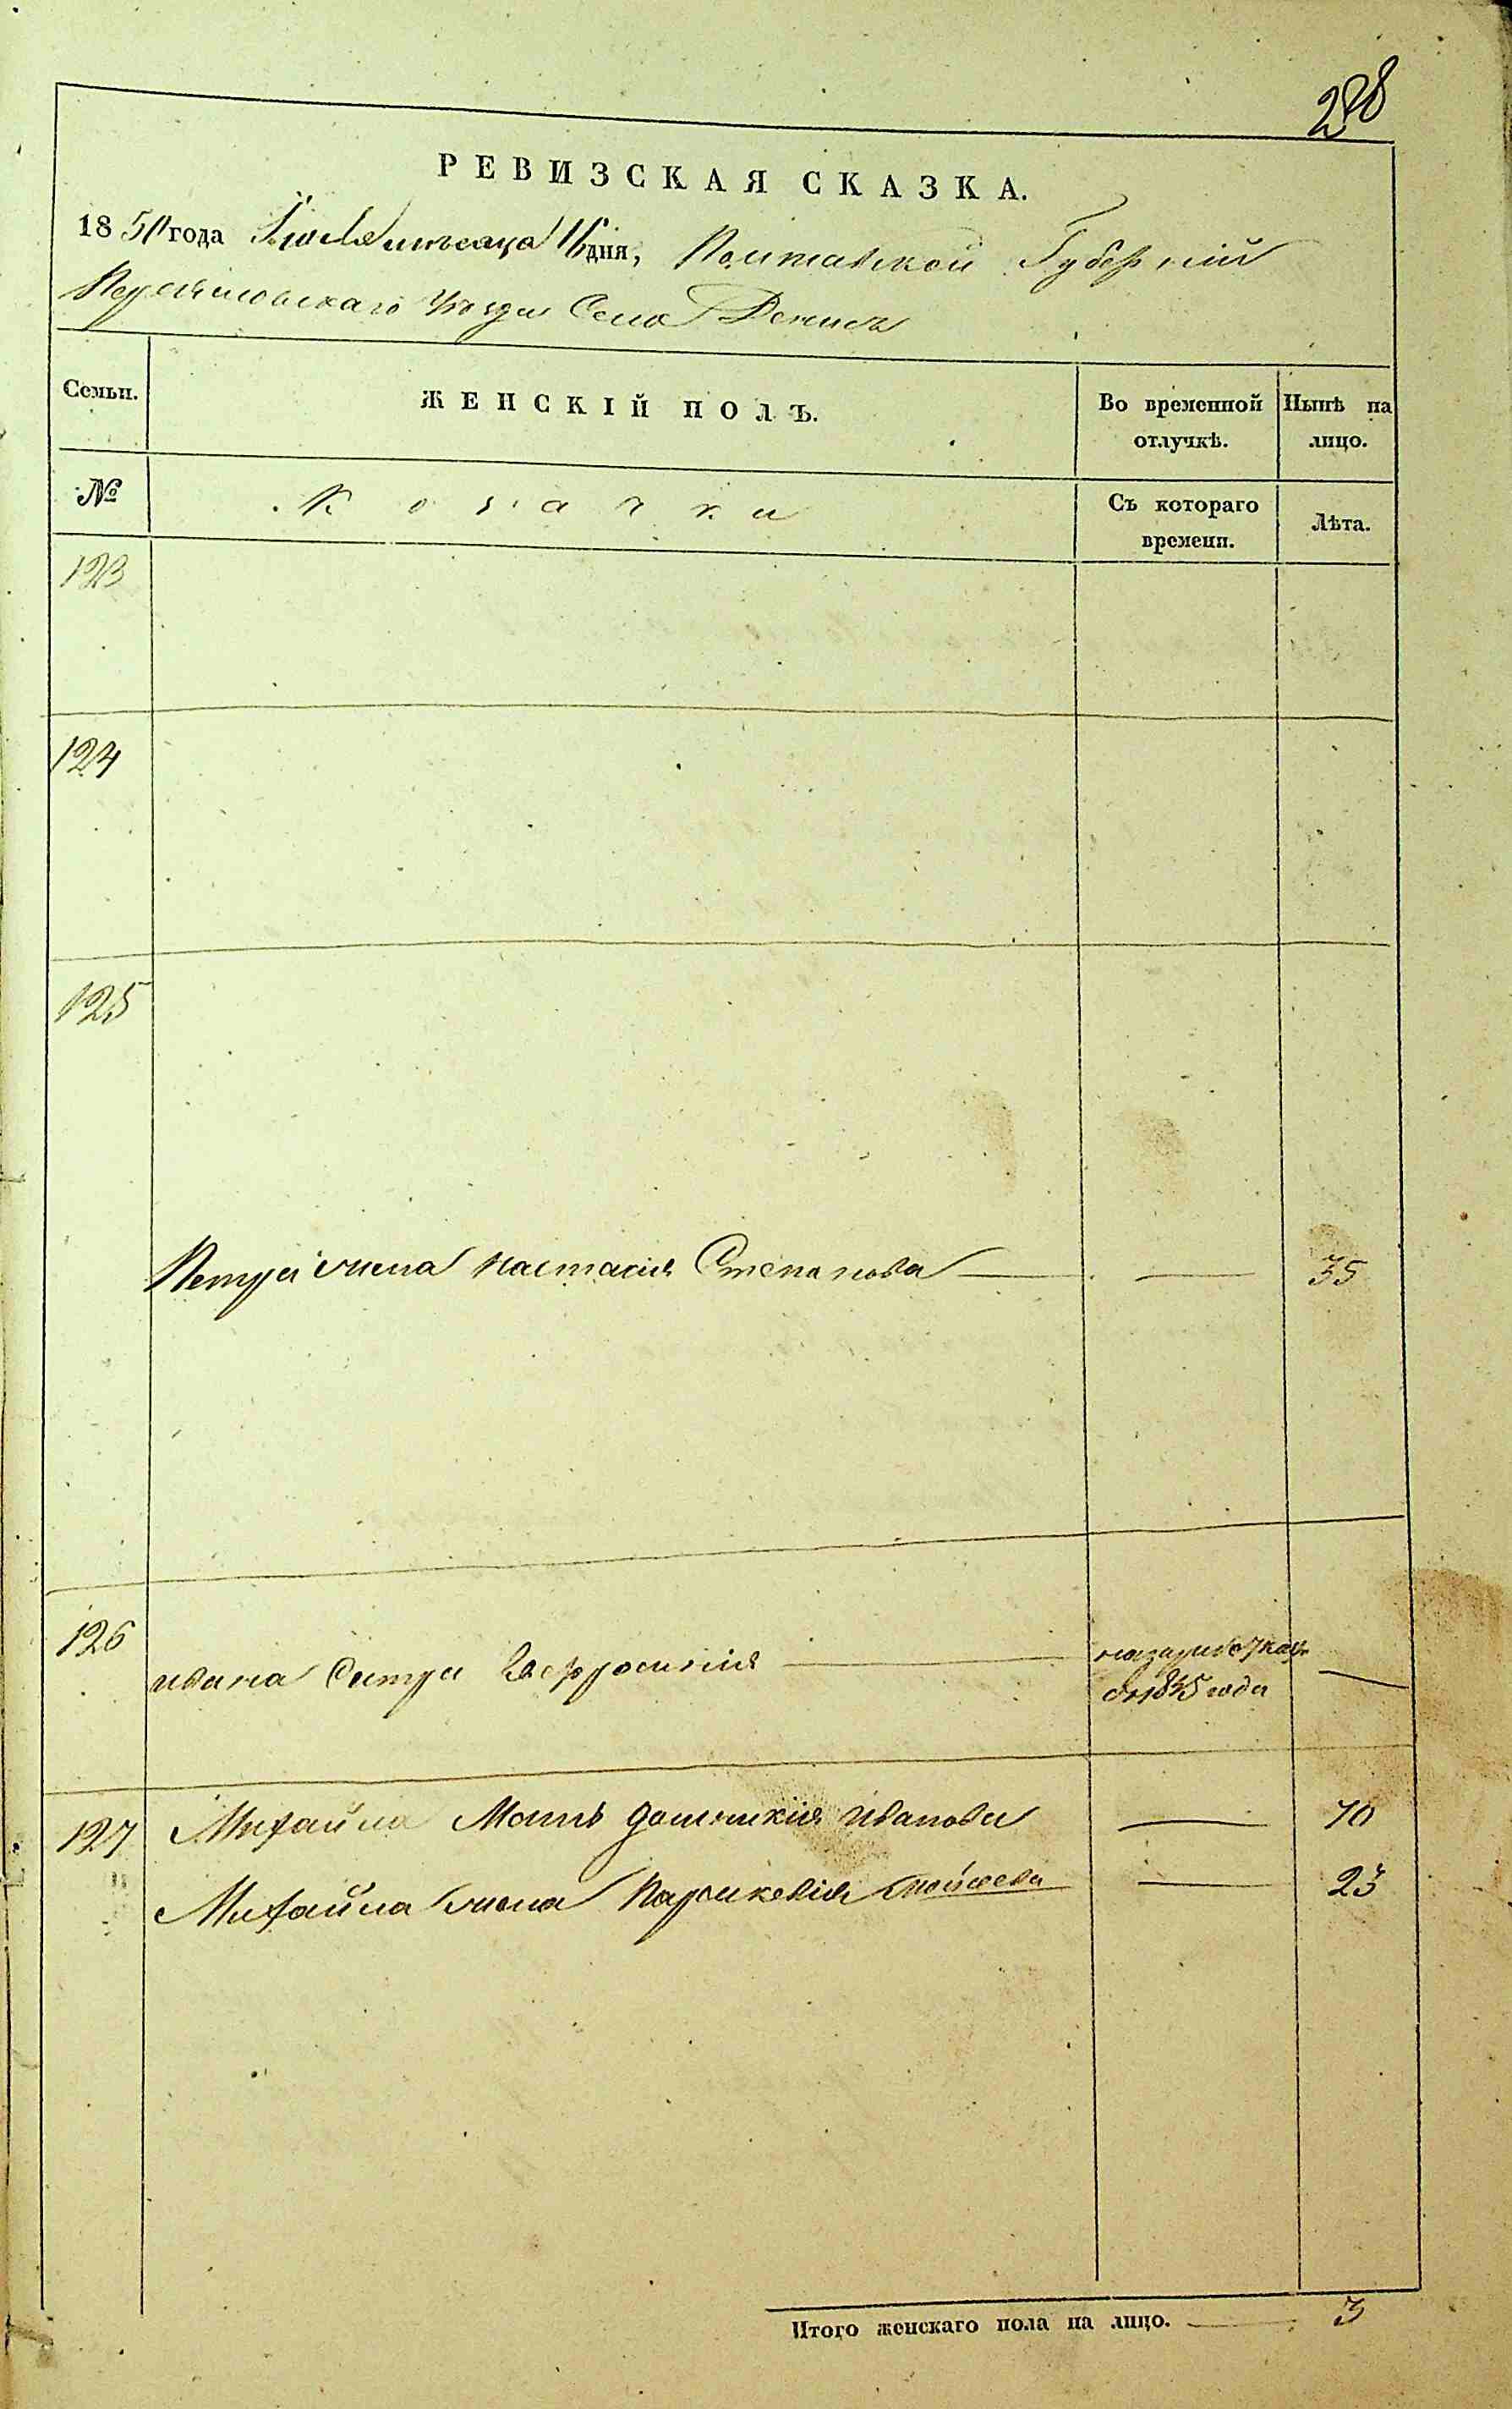 288
РЕВИЗСКАЯ СКАЗКА.
1850 года Июля мѣсяца дня, Полтавской Губерніи
Переяславскаго Уѣзда Села Денисъ
Семьи.
ЖЕНСКІЙ ПОЛЪ.
Во временной отлучкѣ.
Нынѣ на лицо.
№
Козачки
Съ котораго времени.
Лѣта.
123
124
125
Петра жена Настасія Степанова — — 35
126
Ивана Систра Ефросинія —
съ 1845 года —
127 Михайла Мать Домникія Иванова — 70
Михайла жена Параскевія Мойсеева — 23
Итого женскаго пола на лицо. — 3